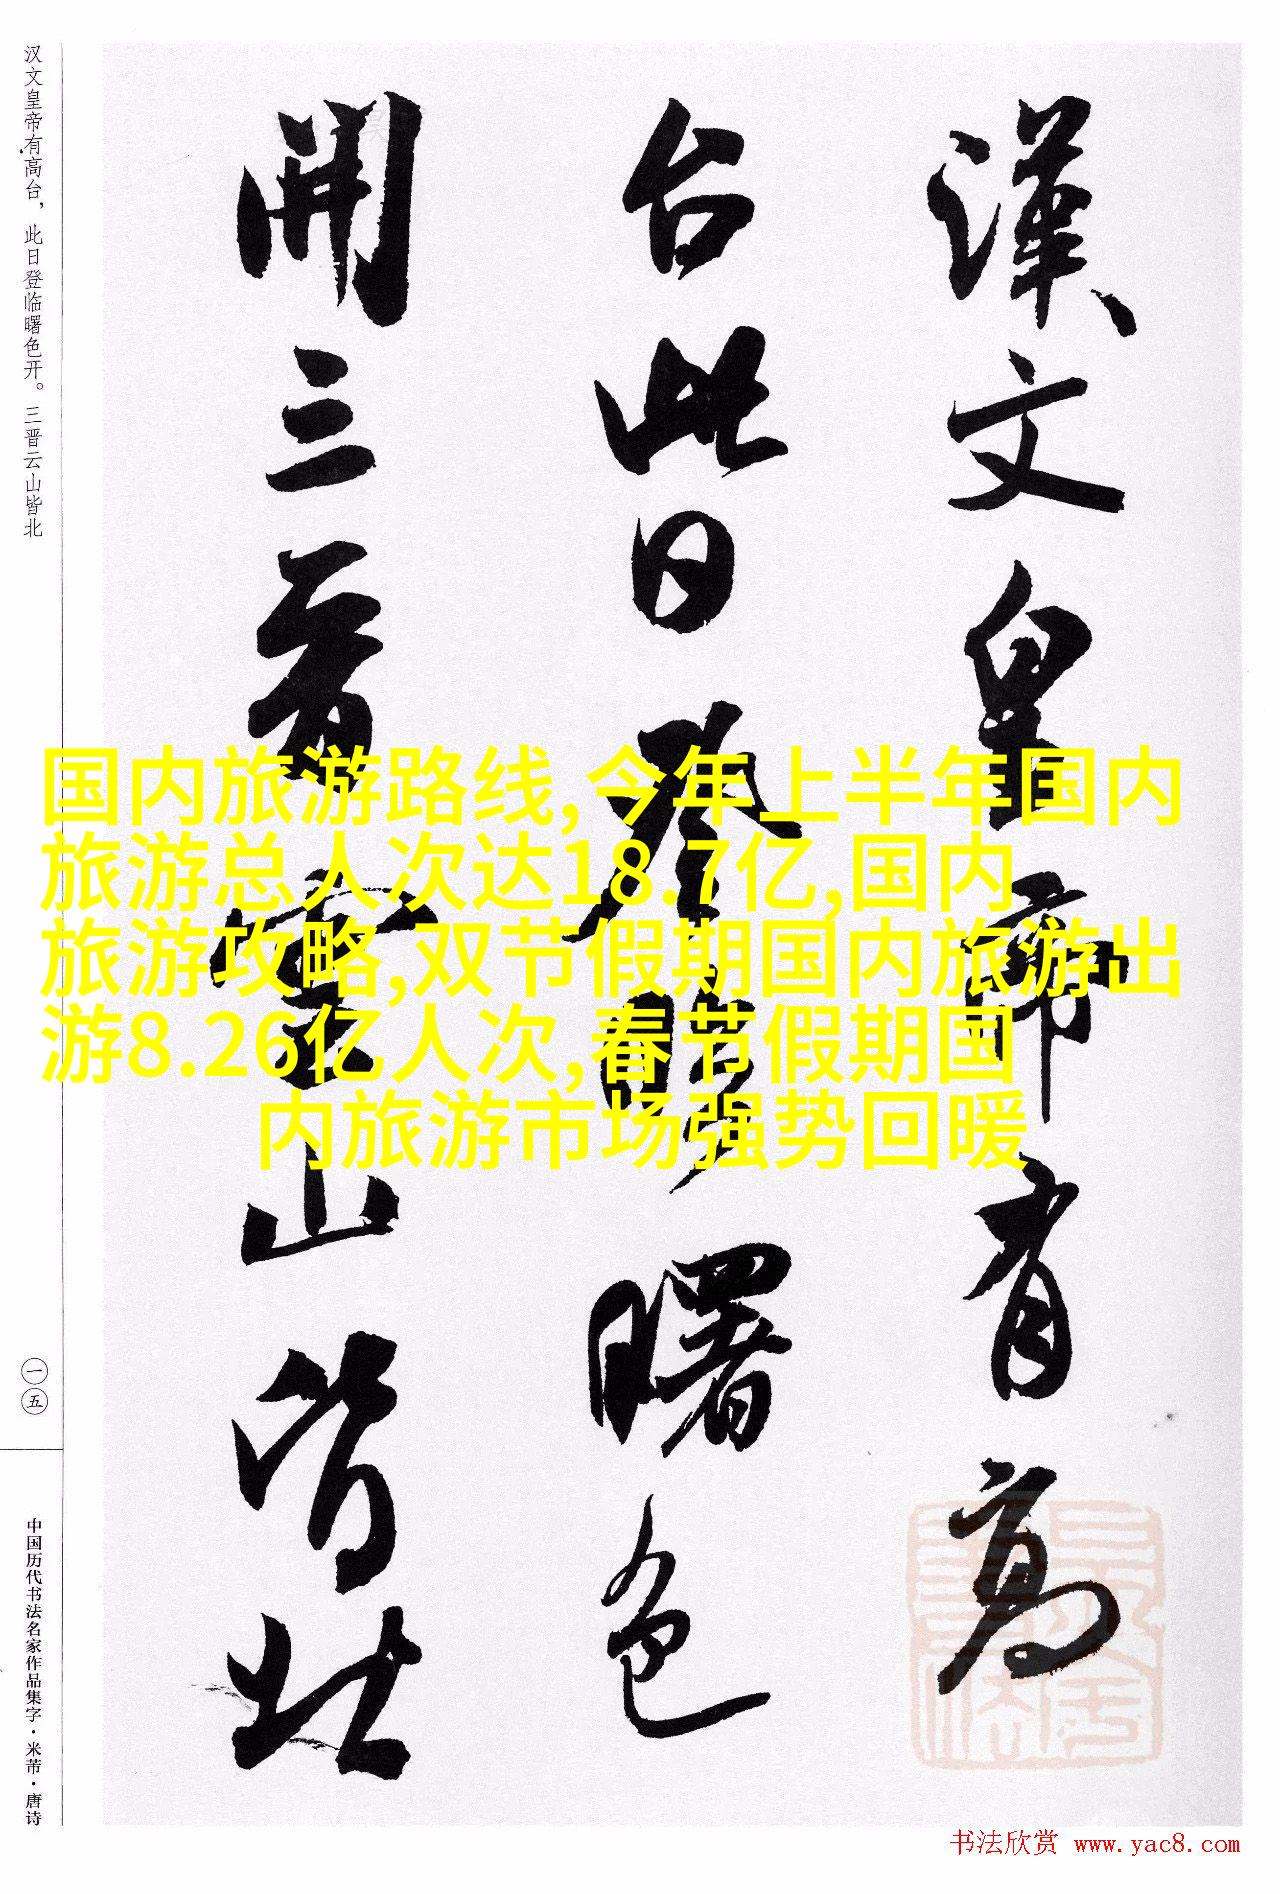 漢文皇帝有高
台此日登臨曙色
開三晋雲山皆北
汉文皇帝有高台，此日登临曙色开。三晋云山皆北
一五
中国历代书法名家作品集字·米芾·唐诗
国内旅游路线,今年上半年国内
旅游总人次达18.7亿,国内
旅游攻略,双节假期国内旅游出
游8.26亿人次,春节假期国
内旅游市场强势回暖
书法欣赏 www.yac8.com